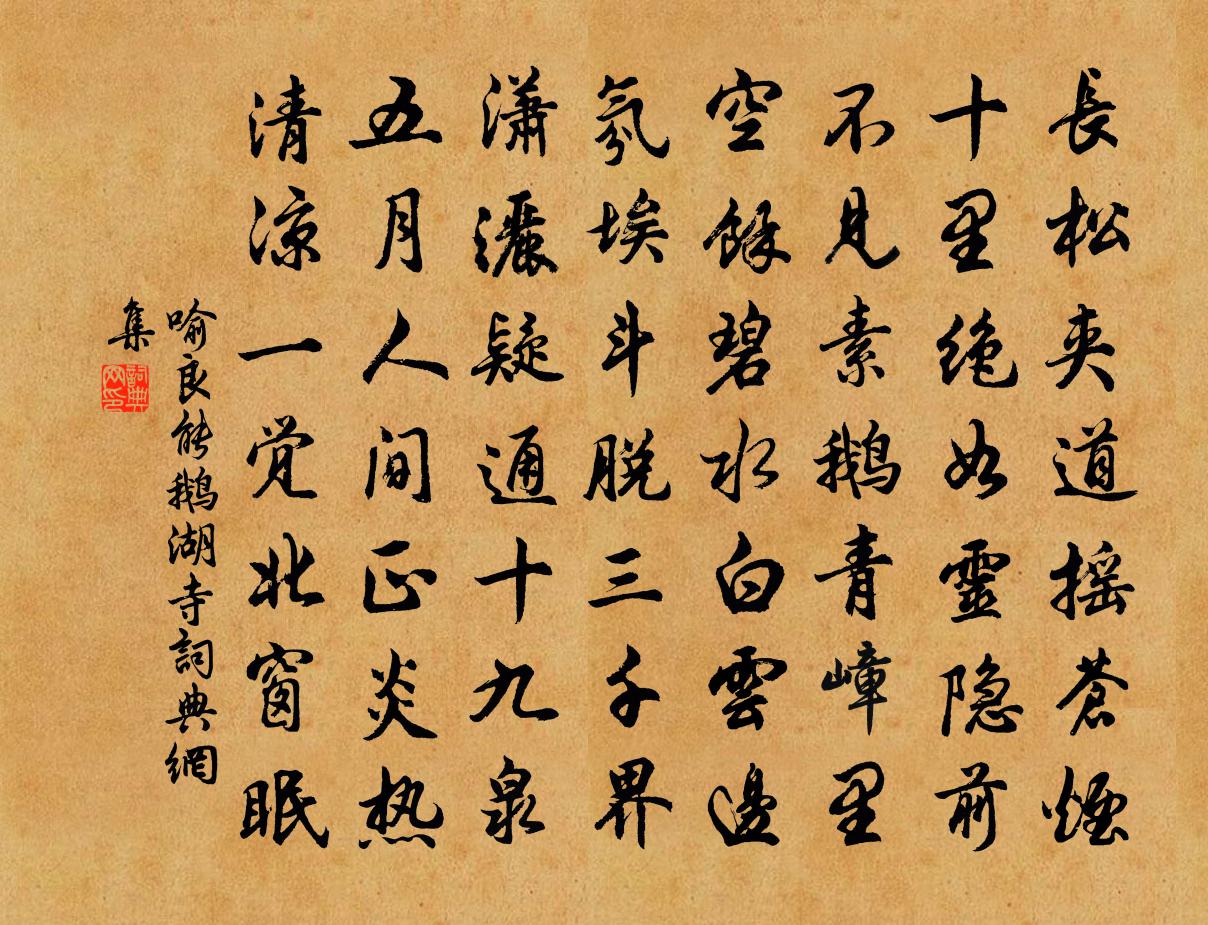 長松夹道摇蒼煙
十里绝如靈隐前
不見素鹅青嶂里
空餘碧水白雲邊
氛埃斗脱三千界
瀟灑疑通十九泉
五月人间正炎热
清凉一觉北窗眠
喻良能鹅湖寺詞典網
集
詞典
网印